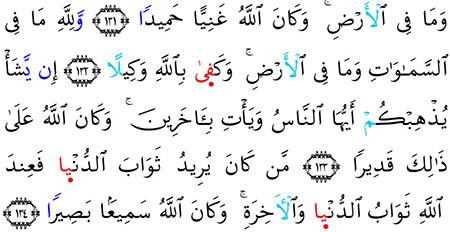 وَمَا فِى ٱلْأَرْضِ ۚ وَكَانَ ٱللَّهُ غَنِيًّا حَمِيدًا ١٣١ وَلِلَّهِ مَا فِى
ٱلسَّمَـٰوَٰتِ وَمَا فِى ٱلْأَرْضِ ۚ وَكَفَىٰ بِٱللَّهِ وَكِيلًا ١٣٢ إِن يَشَأْ
يُذْهِبْكُمْ أَيُّهَا ٱلنَّاسُ وَيَأْتِ بِـَٔاخَرِينَ ۚ وَكَانَ ٱللَّهُ عَلَىٰ
ذَٰلِكَ قَدِيرًا ١٣٣ مَّن كَانَ يُرِيدُ ثَوَابَ ٱلدُّنْيَا فَعِندَ
ٱللَّهِ ثَوَابُ ٱلدُّنْيَا وَٱلْـَٔاخِرَةِ ۚ وَكَانَ ٱللَّهُ سَمِيعًۢا بَصِيرًا ١٣٤